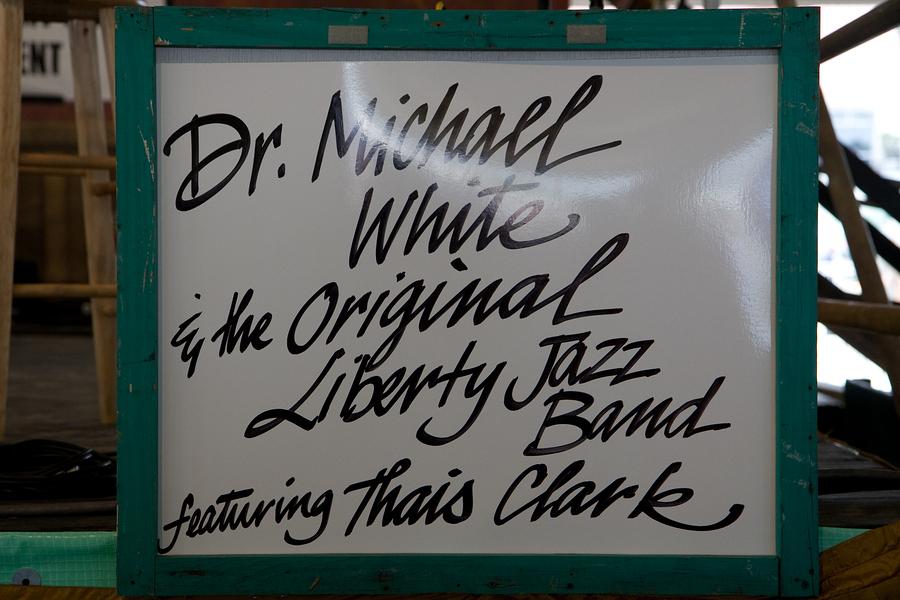 ENT
Dr. Michael
White
& the Original
Liberty Jazz
Band
featuring Thais Clark